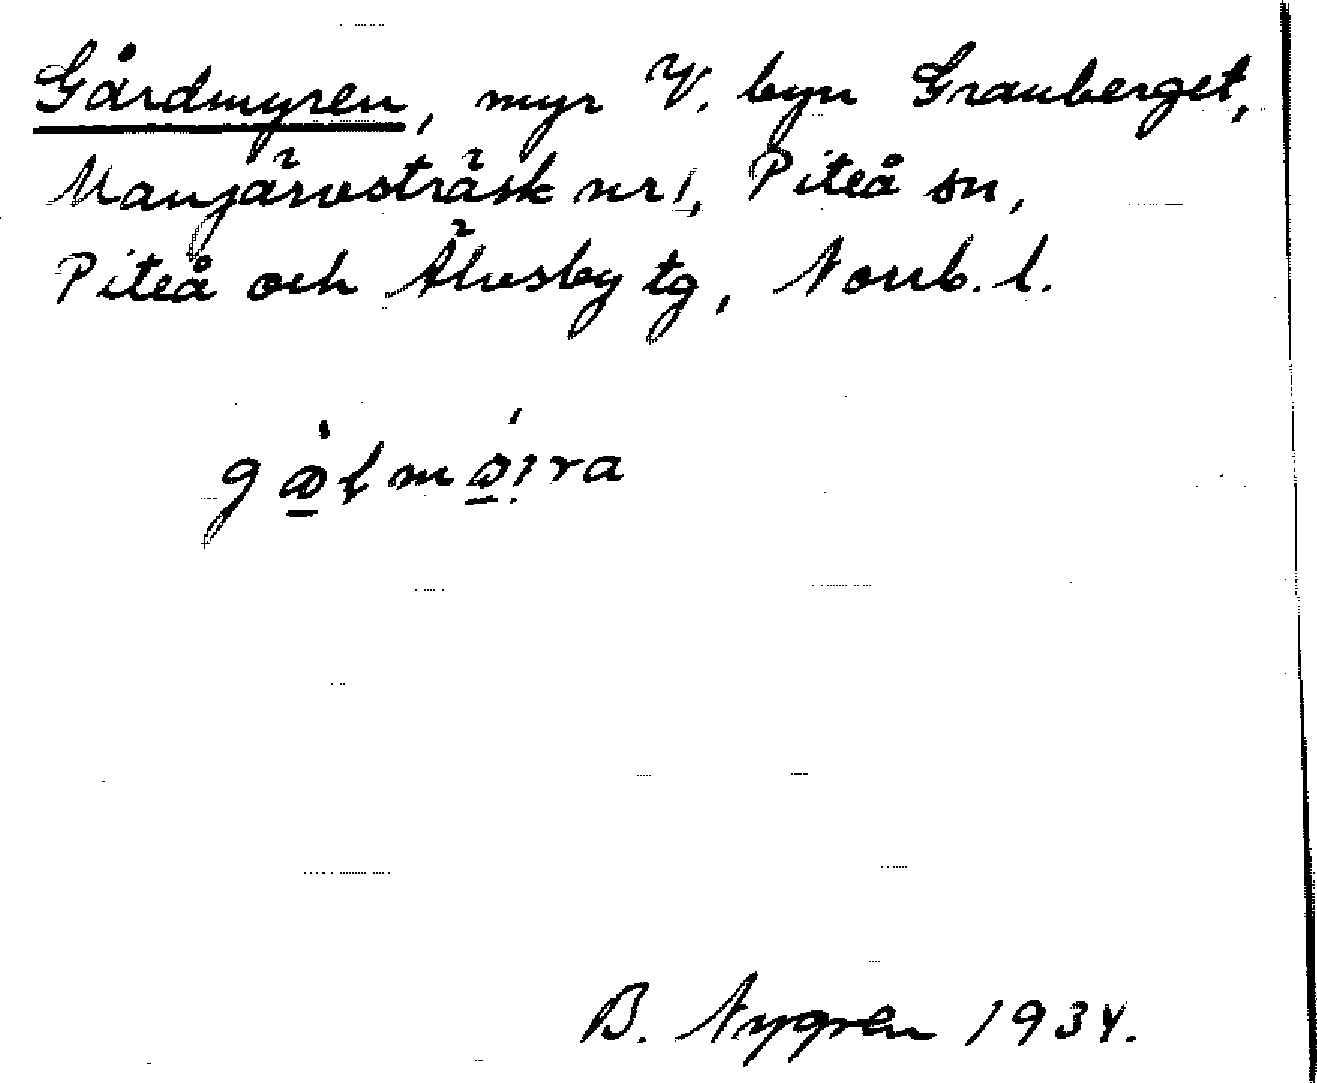 Gårdmyren, myr V. byn Granberget,
Manjärvsträsk nr 1, Piteå sn,
Piteå och Älvsby tg, Norrb. l.
B. Nygren 1934.